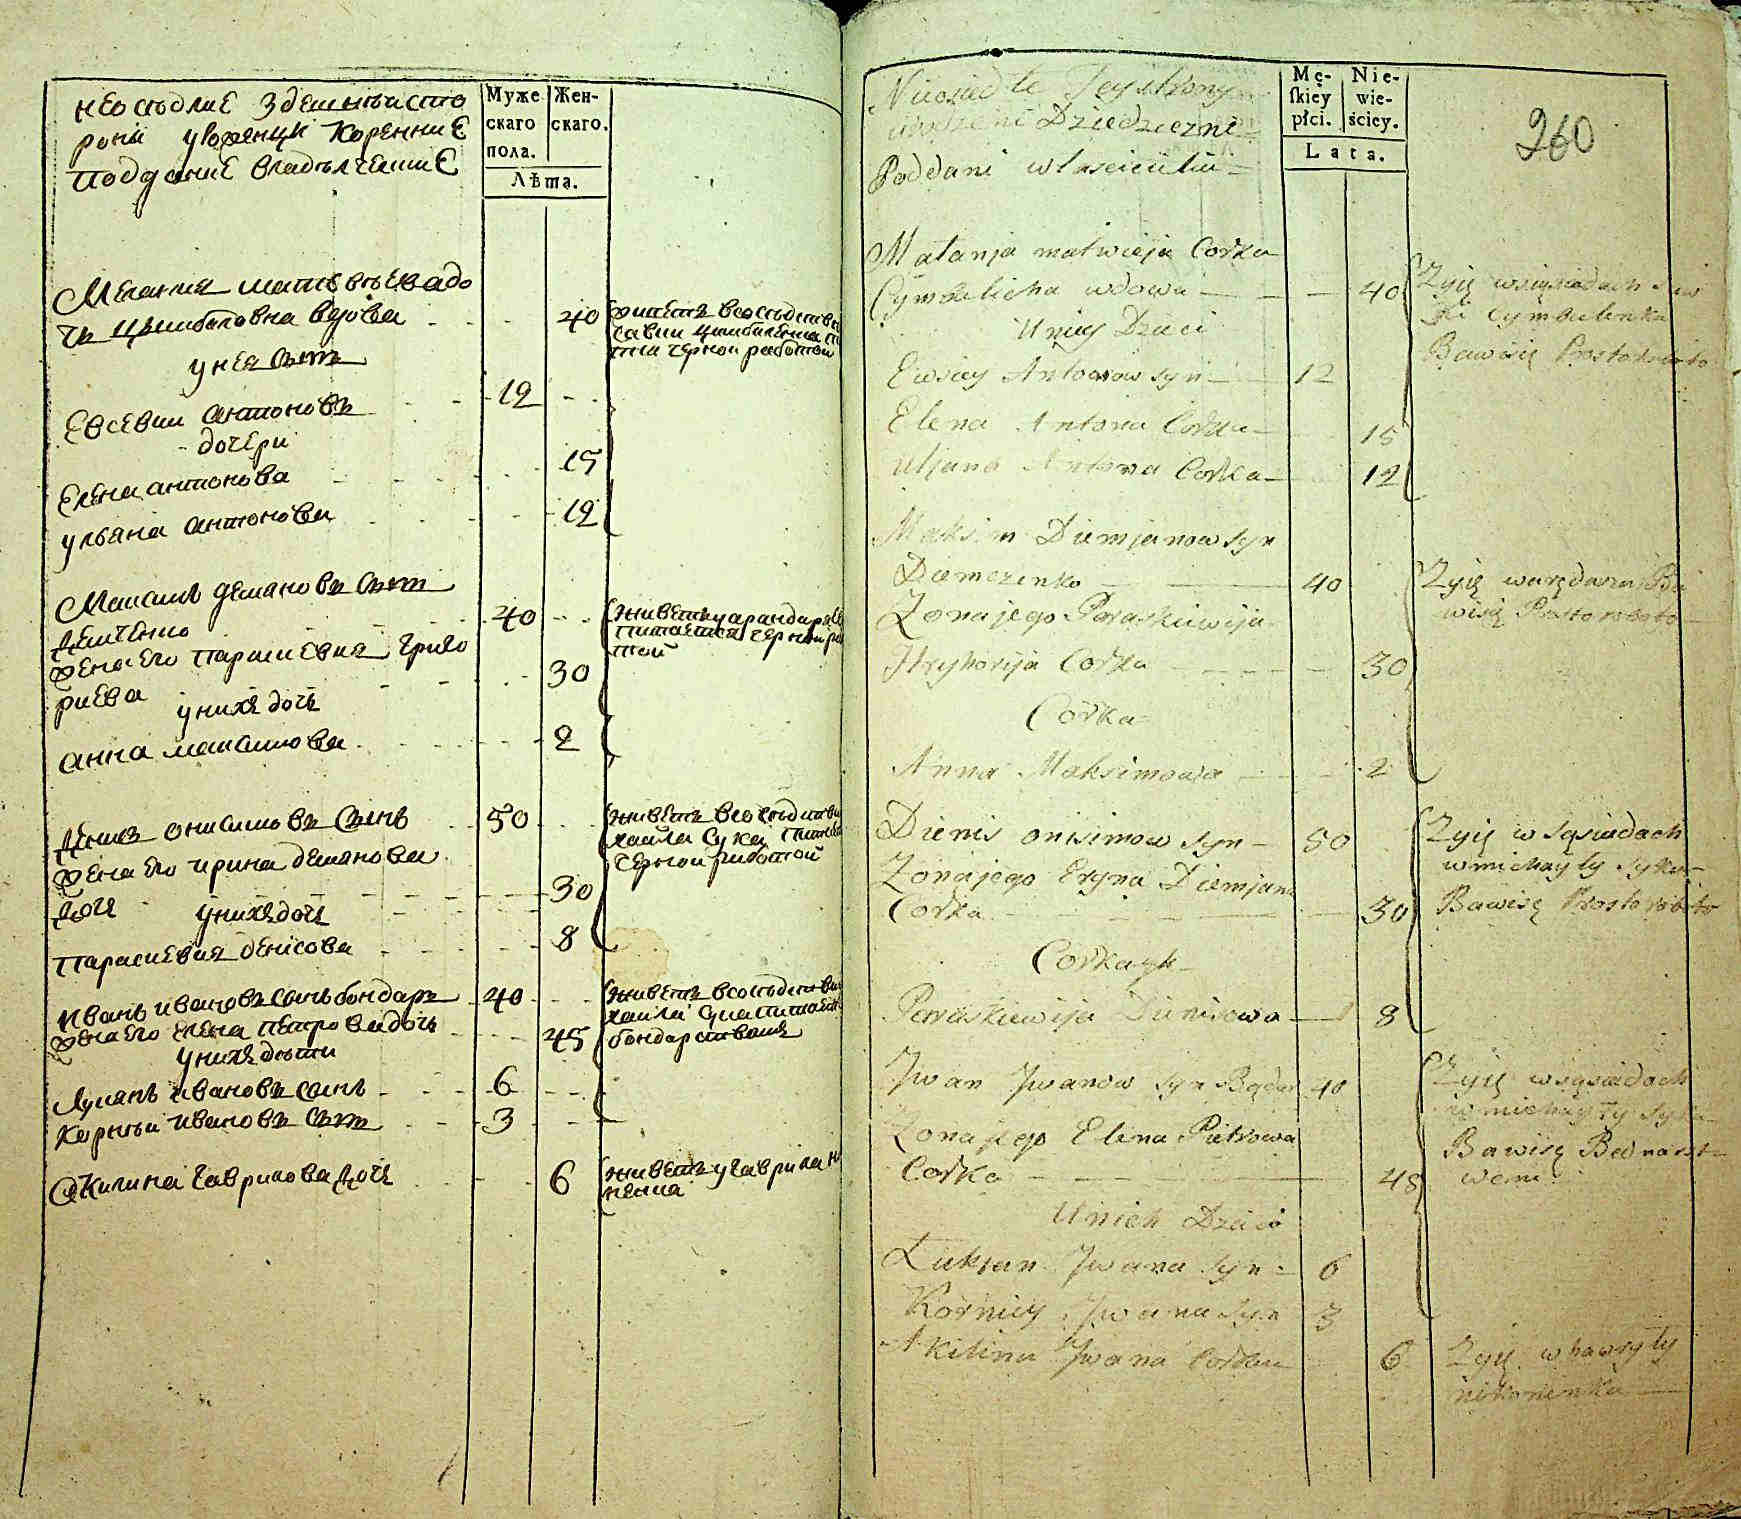 неоседлие здешнѣй сто
рони уроженци коренние
поддание владѣлческие
Муже
скаго
пола.
Жен-
скаго.
Лѣта.
Мелания матвѣева до
чь цимбаловна вдова 40
живетъ в соседстве
савки цимбаленка пи
тца черной работой
у нея сынъ
Евсевии антоновъ 12
дочери
Елена антонова 15
ульяна антонова 12
Максимъ демяновъ сынъ
демченко 40
живетъ у арандара
питается черной рабо
той
жена его параскевия григо
риева 30
у нихъ дочь
анна максимова 2
Денисъ онисимовъ сынъ 50
живетъ в соседстве ми
хайла сука
черной работой
жена его ирина демянова
дочь 30
у нихъ дочь
параскевия денисова 8
иванъ ивановъ сынъ бондаръ 40
живетъ в соседстве ми
хайла сука питается
бондарствомъ
жена его елена петрова дочь 45
у нихъ дети
лукянъ ивановъ сынъ 6
корнѣй ивановъ сынъ 3
Акилина гаврилова дочь 6
живетъ у гаврила ни
ненка
260
Nieosiedłe Tey strony
urodzeni Dziedziczne
Poddani własciciela
Mę-
skiey
płci.
Nie-
wie-
ściey.
Lata.
Małanja matwieja Corka
Cymbalicha wdowa 40
Zyię w sąsiadach Saw
ki Cymbalenka
Bawi się Prosto robota
U niey Dzieci
Ewsiey Antonow syn 12
Elena Antona Corka 15
Uljana Antona Corka 12
Maksim Diemjanow syn
Demczenko 40
Zyię w arędarza Ba
wi się Prosto robota
Zona jego Paraskiewija
Hryhorija Corka 30
Corka
Anna Maksimowa 2
Dienis onisimow syn 50
Zyię w sąsiadach
w michayły syka
Bawi się Prosto robota
Zona jego Eryna Diemjana
Corka 30
Corka ych
Paraskiewija Dienisowa 8
Jwan Jwanow syn Bądar 40
Zyię w sąsiadach
w michayły syka
Bawi się Bednarst
wem
Zona jego Elena Pietrowa
Corka 45
U nich Dzieci
Łukian Jwana syn 6
Korniey Jwana syn 3
Akilina Jwana Corka 6
Zyię w hawryły
nikonienka